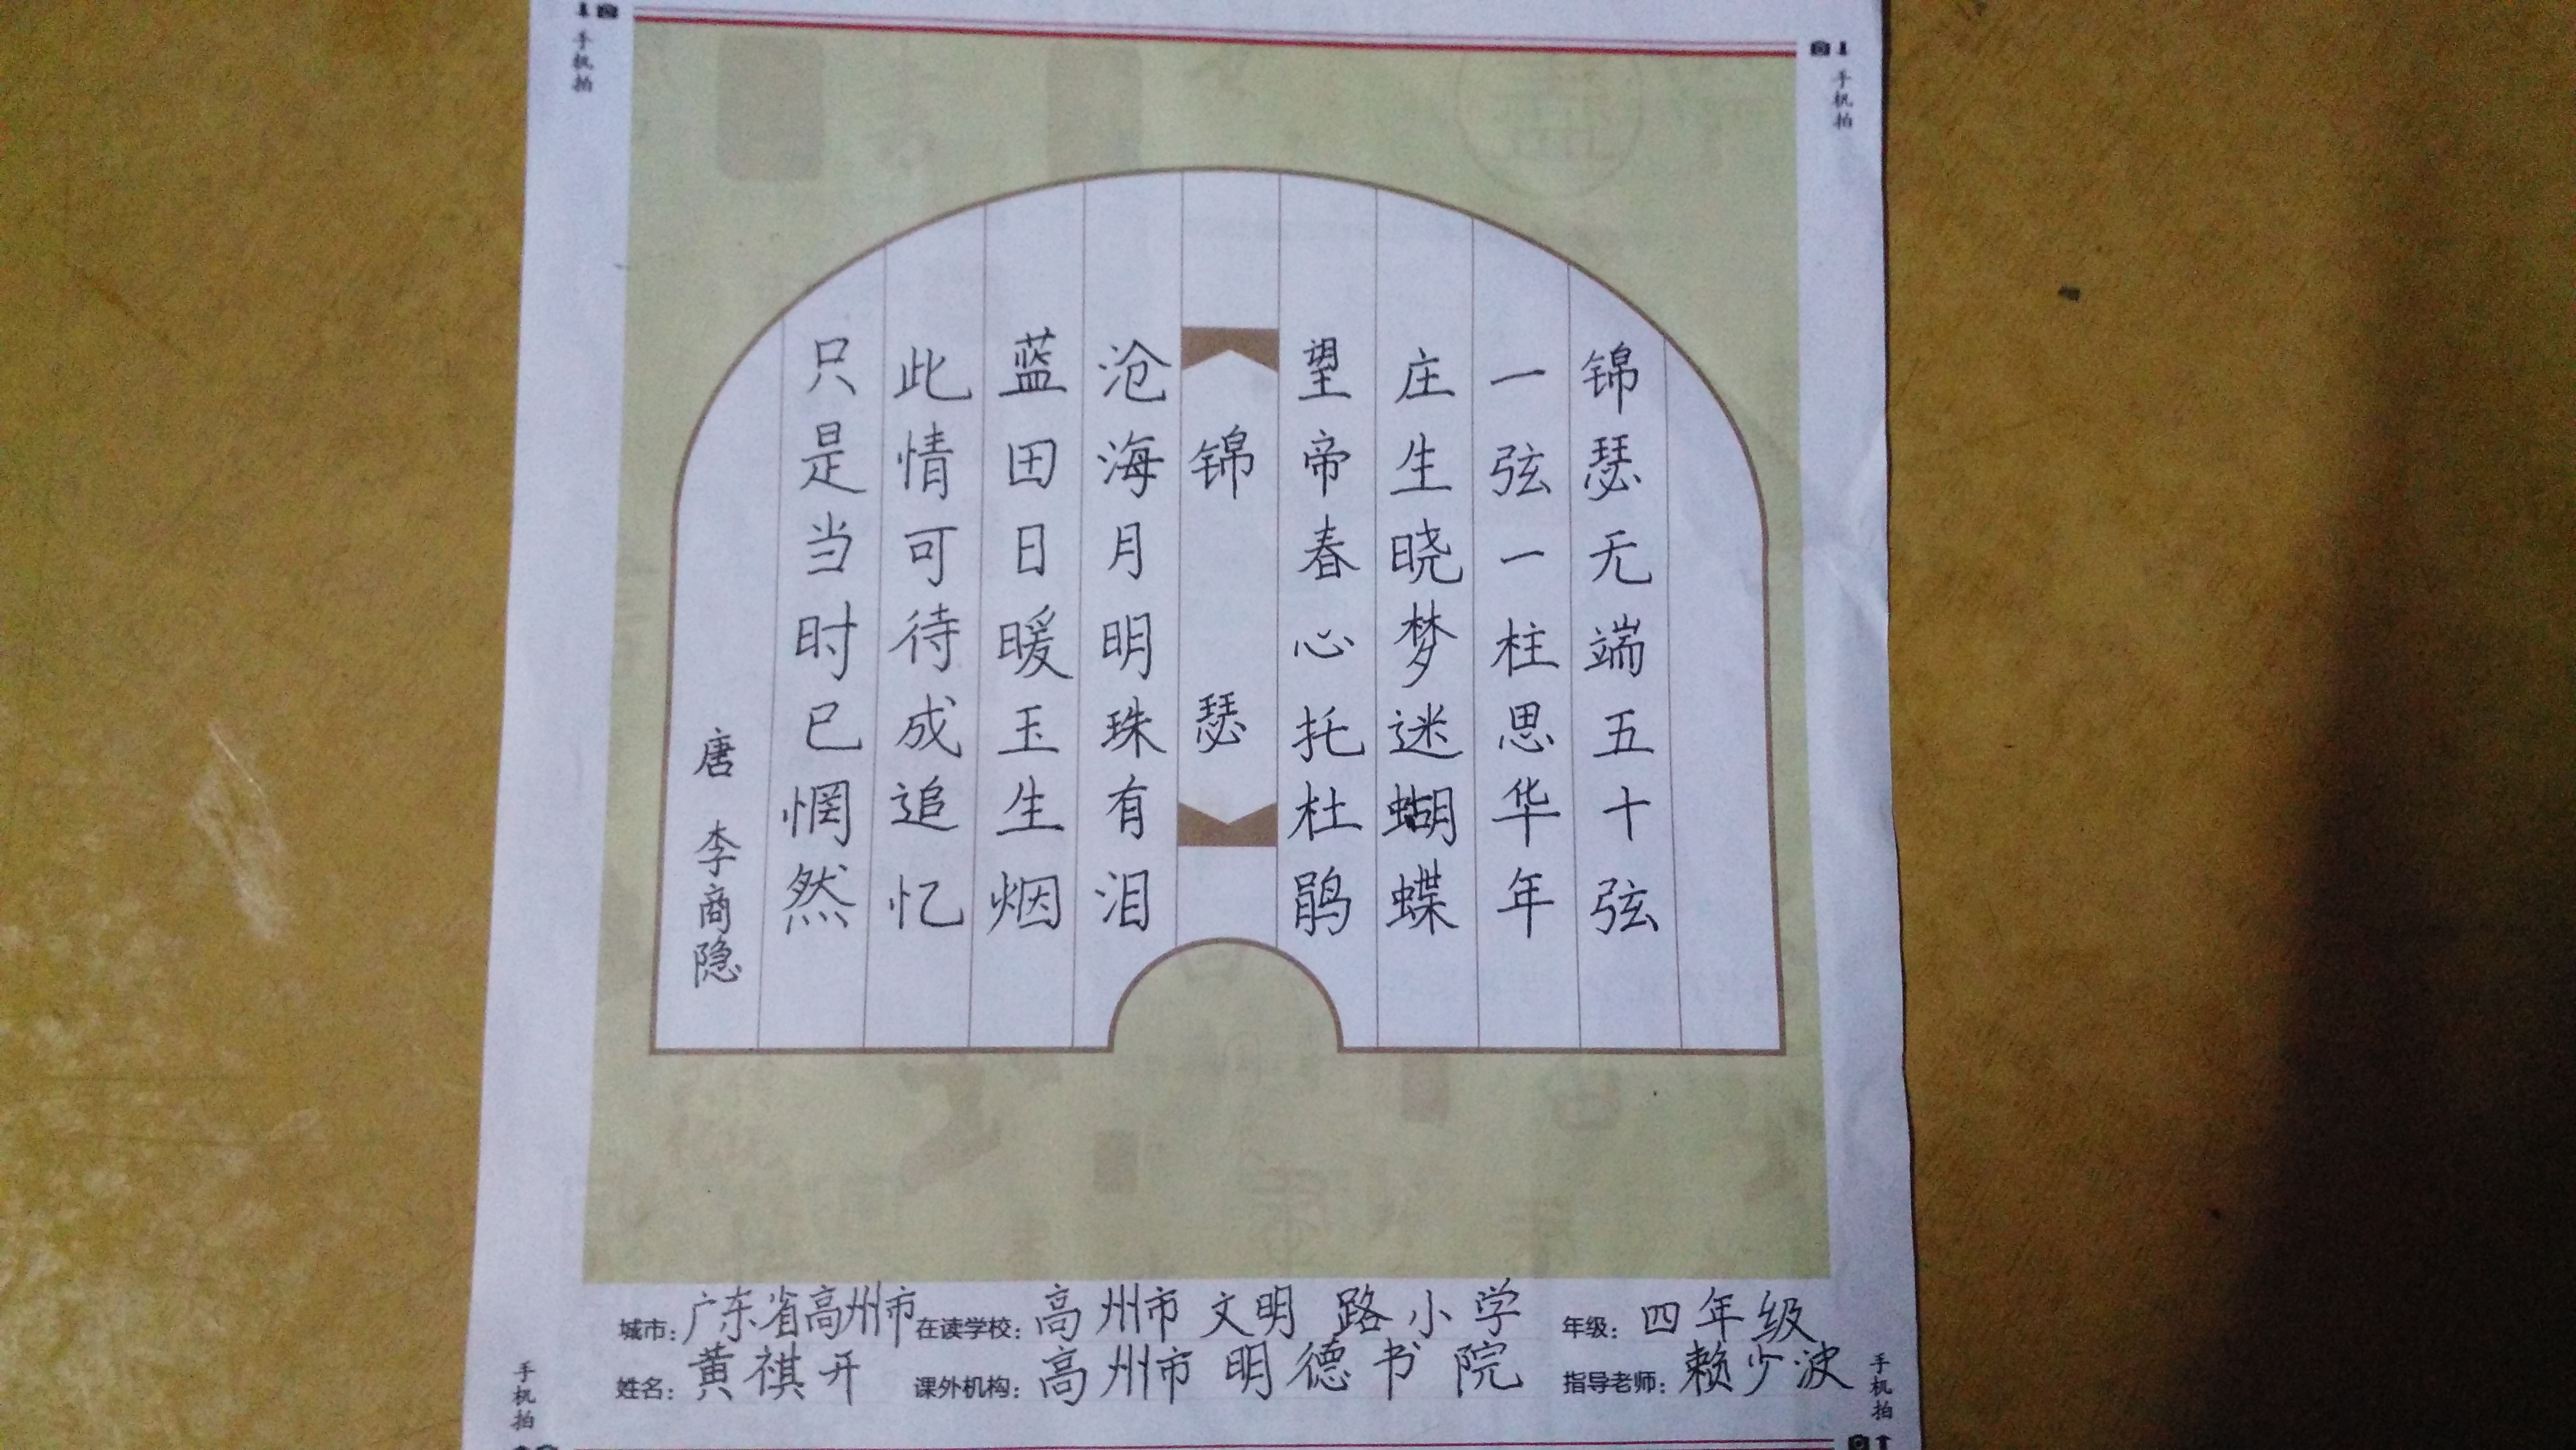 手机拍
手机拍
锦瑟无端五十弦
一弦一柱思华年
庄生晓梦迷蝴蝶
望帝春心托杜鹃
锦瑟
沧海月明珠有泪
蓝田日暖玉生烟
此情可待成追忆
只是当时已惘然
唐 李商隐
城市：广东省高州市 在读学校：高州市文明路小学 年级：四年级
姓名：黄祺开 课外机构：高州市明德书院 指导老师：赖少波
手机拍
手机拍